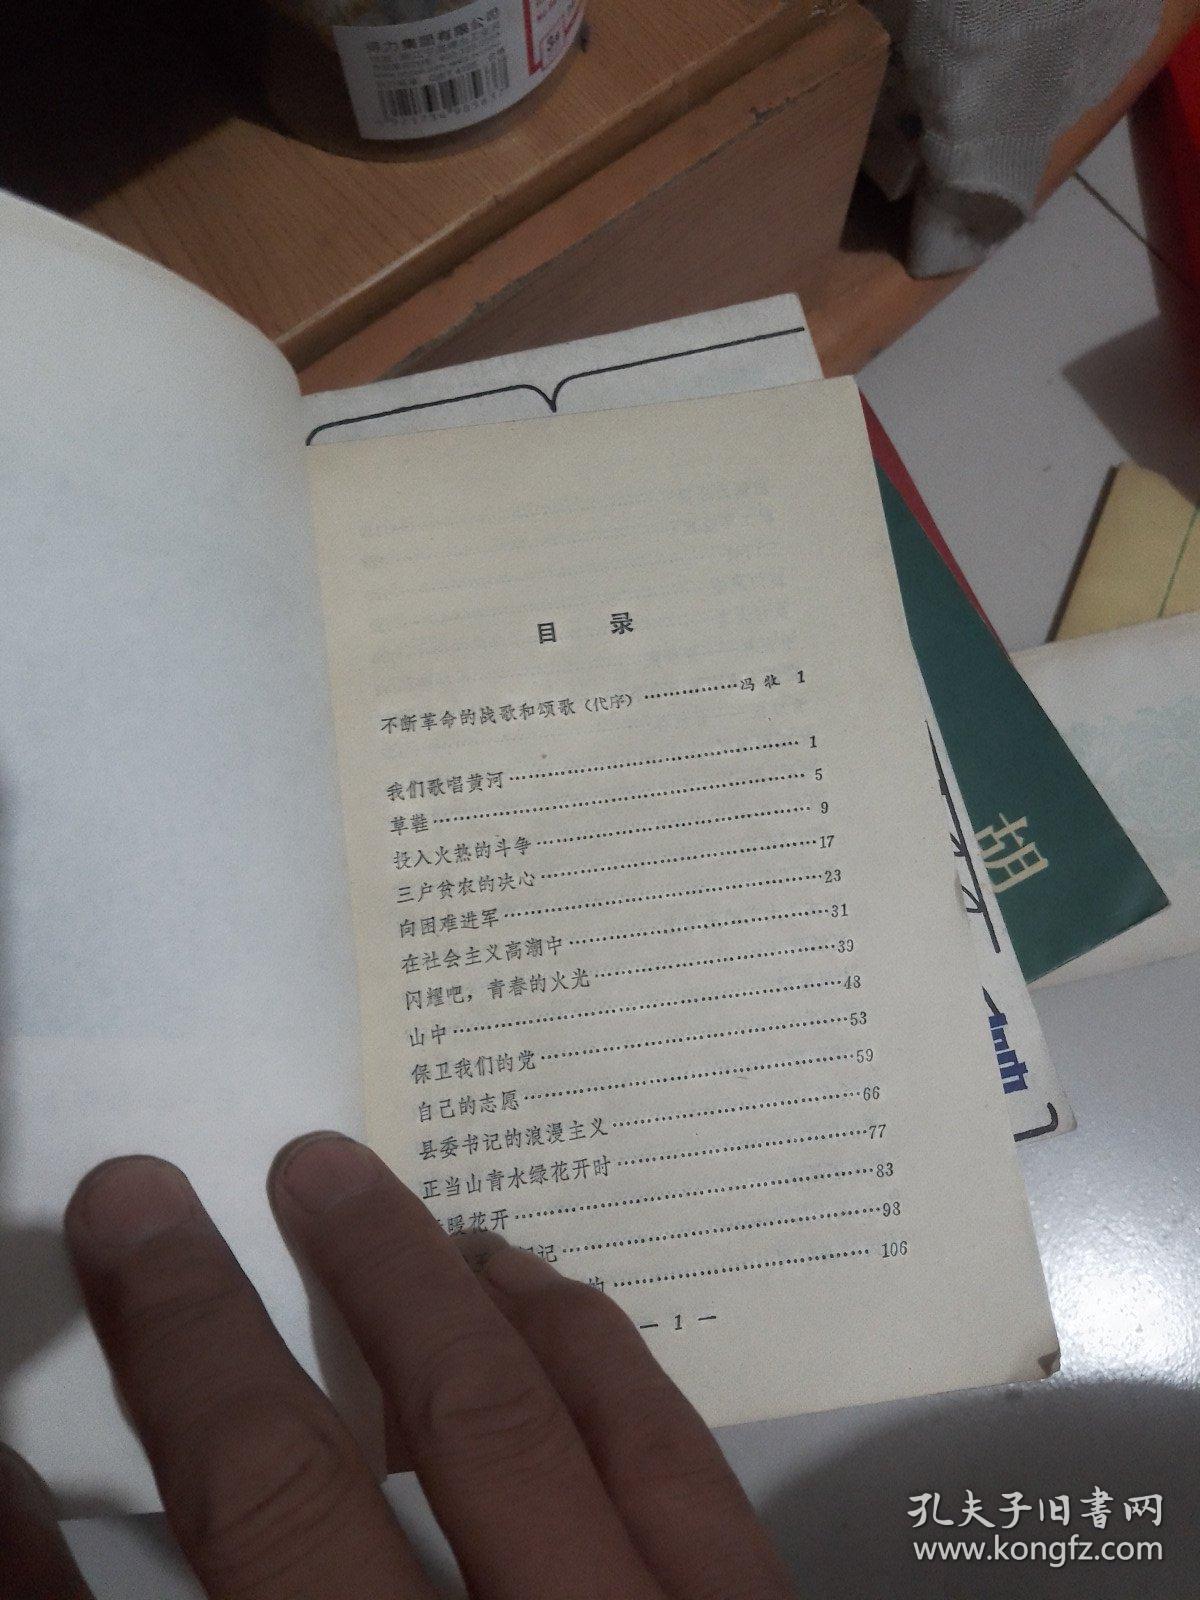 得力集团有限公司
目 录
不断革命的战歌和颂歌（代序）………………冯 牧 1
我们歌唱黄河………………………………………… 1
草鞋…………………………………………………… 5
投入火热的斗争……………………………………… 9
三户贫农的决心………………………………………17
向困难进军……………………………………………23
在社会主义高潮中……………………………………31
闪耀吧，青春的火光…………………………………39
山中……………………………………………………48
保卫我们的党…………………………………………53
自己的志愿……………………………………………59
县委书记的浪漫主义…………………………………66
正当山青水绿花开时…………………………………77
暖花开…………………………………………………83
记………………………………………………………98
的……………………………………………………… 106
— 1 —
胡
孔夫子旧書网
www.kongfz.com